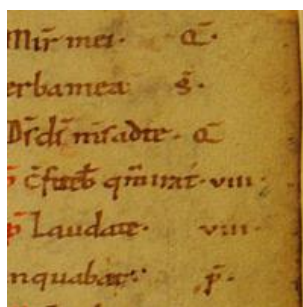 Mir̄ mei. a̅.
erbamea s̄.
D̄s d̄s m̄s adte. a̅
p̄ c̄fiteb̄ qm̄ irat. viii.
p̄ Laudate. viii.
nquabat. p̄.